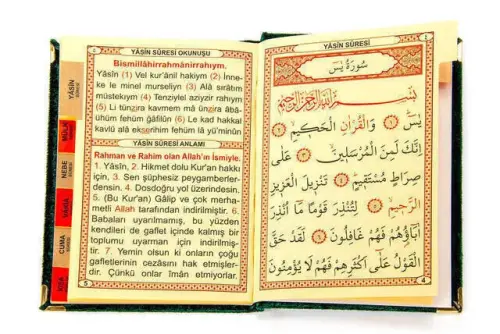 YÂSÎN SÛRESİ OKUNUŞU
Bismillâhirrahmânirrahıym.
Yâsîn (1) Vel kur'ânil hakiym (2) İnne-
ke le minel murseliyn (3) Alâ sırâtım
müstekıym (4) Tenziylel aziyzir rahıym
(5) Li tünzıra kavmem mâ ünzira âba-
ühüm fehüm ğâfilûn (6) Le kad hakkal
kavlü alâ ekserihim fehüm lâ yü'minûn
YÂSÎN SÛRESİ ANLAMI
Rahman ve Rahim olan Allah'ın İsmiyle.
1. Yâsîn, 2. Hikmet dolu Kur'an hakkı
için, 3. Sen şüphesiz peygamberler-
densin. 4. Dosdoğru yol üzerindesin.
5. (Bu Kur'an) Gâlip ve çok merha-
metli Allah tarafından indirilmiştir. 6.
Babaları uyarılmamış, bu yüzden
kendileri de gaflet içinde kalmış bir
toplumu uyarman için indirilmiş-
tir. 7. Yemin olsun ki onların çoğu
gafletlerinin cezasını hak etmişler-
dir. Çünkü onlar îman etmiyorlar.
5
YÂSİN
MÜLK
NEBE
CUMA
YÂSÎN SÛRESİ
سُورَةُ يٰسٓ
بِسْمِ اللّٰهِ الرَّحْمٰنِ الرَّحِيمِ
يٰسٓ ﴿١﴾ وَالْقُرْاٰنِ الْحَكِيمِ ﴿٢﴾
اِنَّكَ لَمِنَ الْمُرْسَلِينَ ﴿٣﴾ عَلٰى
صِرَاطٍ مُسْتَقِيمٍ ﴿٤﴾ تَنْزِيلَ الْعَزِيزِ
الرَّحِيمِ ﴿٥﴾ لِتُنْذِرَ قَوْمًا مَا اُنْذِرَ
اٰبَاؤُهُمْ فَهُمْ غَافِلُونَ ﴿٦﴾ لَقَدْ حَقَّ
الْقَوْلُ عَلٰى اَكْثَرِهِمْ فَهُمْ لَا يُؤْمِنُونَ
4